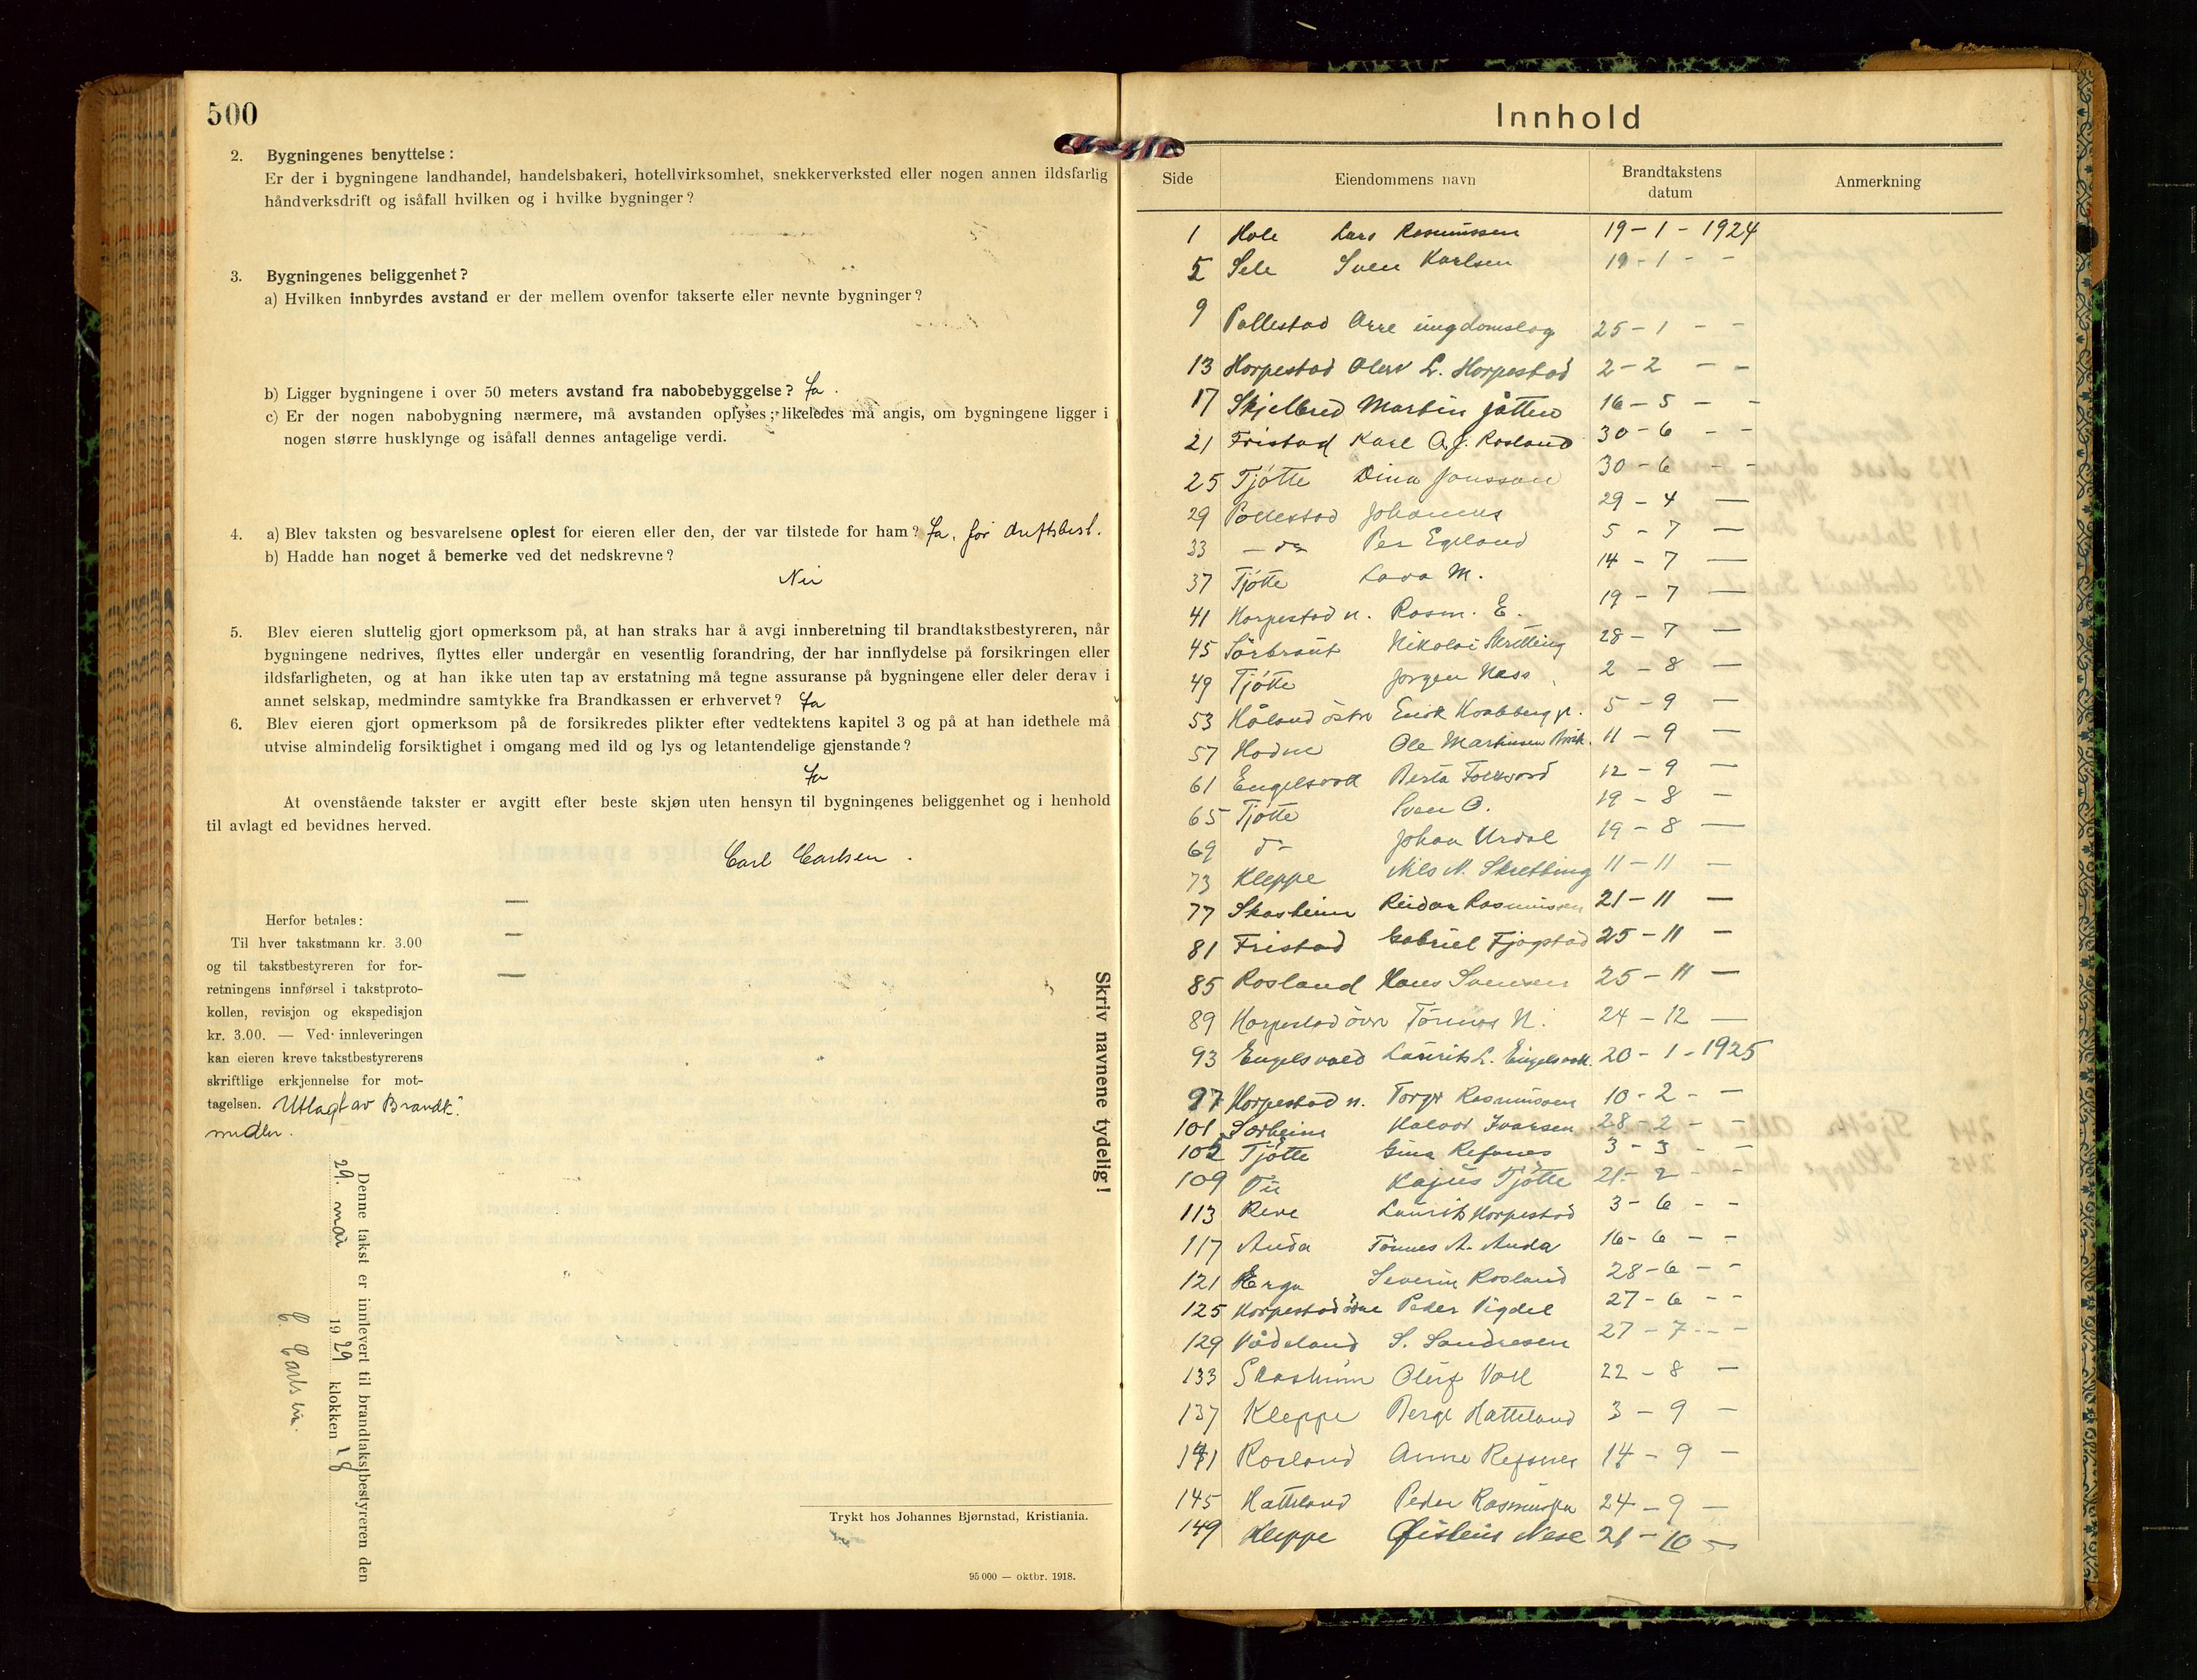 500
2. Bygningenes benyttelse:
Er der i bygningene landhandel, handelsbakeri, hotellvirksomhet, snekkerverksted eller nogen annen ildsfarlig
håndverksdrift og isåfall hvilken og i hvilke bygninger?
3. Bygningenes beliggenhet?
a) Hvilken innbyrdes avstand er der mellem ovenfor takserte eller nevnte bygninger?
b) Ligger bygningene i over 50 meters avstand fra nabobebyggelse? Ja.
c) Er der nogen nabobygning nærmere, må avstanden oplyses; likeledes må angis, om bygningene ligger i
nogen større husklynge og isåfall dennes antagelige verdi.
4. a) Blev taksten og besvarelsene oplest for eieren eller den, der var tilstede for ham? Ja, for driftsbest.
b) Hadde han noget å bemerke ved det nedskrevne?
Nei
5. Blev eieren sluttelig gjort opmerksom på, at han straks har å avgi innberetning til brandtakstbestyreren, når
bygningene nedrives, flyttes eller undergår en vesentlig forandring, der har innflydelse på forsikringen eller
ildsfarligheten, og at han ikke uten tap av erstatning må tegne assuranse på bygningene eller deler derav i
annet selskap, medmindre samtykke fra Brandkassen er erhvervet? Ja
6. Blev eieren gjort opmerksom på de forsikredes plikter efter vedtektens kapitel 3 og på at han idethele må
utvise almindelig forsiktighet i omgang med ild og lys og letantendelige gjenstande?
Ja
At ovenstående takster er avgitt efter beste skjøn uten hensyn til bygningenes beliggenhet og i henhold
til avlagt ed bevidnes herved.
Carl Carlsen.
Herfor betales:
Til hver takstmann kr. 3.00
og til takstbestyreren for for-
retningens innførsel i takstproto-
kollen, revisjon og ekspedisjon
kr. 3.00. — Ved innleveringen
kan eieren kreve takstbestyrerens
skriftlige erkjennelse for mot-
tagelsen. Utlagt av Brandk.
midler.
Denne takst er innlevert til brandtakstbestyreren den
29. mai 1929 klokken 18
C. Carlsen.
Skriv navnene tydelig!
Trykt hos Johannes Bjørnstad, Kristiania.
95 000 — oktbr. 1918.
Innhold
Side Eiendommens navn Brandtakstens datum Anmerkning
1 Hole Lars Rasmussen 19-1-1924
5 Sele Sven Karlsen 19-1 - -
9 Pollestad Orre ungdomslag 25-1 - -
13 Horpestad Olav L. Horpestad 2-2 - -
17 Skjelbred Martin Jåtten 16-5 - -
21 Fristad Karl A. J. Rosland 30-6 - -
25 Tjøtte Dina Jonsson 30-6 - -
29 Pollestad Johannes 29-4 —
33 — do Per Egeland 5-7 —
37 Tjøtte Lava M. 14-7 —
41 Horpestad n. Rasm. E. 19-7 —
45 Sørbraut Nikolai Skretting 28-7 —
49 Tjøtte Jørgen Næss 2-8 —
53 Håland østre 5-9 —
57 Hodne Ole Martinsen 11-9 —
61 Engelsvoll Berta Folkvord 12-9 —
65 Tjøtte Sven O. 19-8 —
69 do Johan Urdal 19-8 —
73 Kleppe Nils N. Skretting 11-11 —
77 Skasheim Reidar Rasmussen 21-11 —
81 Fristad Gabriel Fjogstad 25-11 —
85 Rosland Hans Svensen 25-11 —
89 Horpestad øvre Tønnes N. 24-12 —
93 Engelsvold Laurits L. Engelsvoll. 20-1-1925
97 Horpestad n. Torger Rasmussen 10-2 - -
101 Sørheim Halvor Ivarsen 28-2 - -
105 Tjøtte Gina Refsnes 3-3 - -
109 Tu Kajus Tjøtte 21-2 - -
113 Reve Laurits Horpestad 3-6 - -
117 Anda Tønnes A. Anda 16-6 - -
121 Erga Severin Rosland 28-6 - -
125 Horpestad øvre Peder Vigdel 27-6 - -
129 Vådeland S. Sandresen 27-7 - -
133 Skasheim Oluf Voll 22-8 —
137 Kleppe Berge Hatteland 3-9 —
141 Rosland Anne Refsnes 14-9 —
145 Hatteland Peder Rasmussen 24-9 —
149 Kleppe Øistein Nese 21-10 —